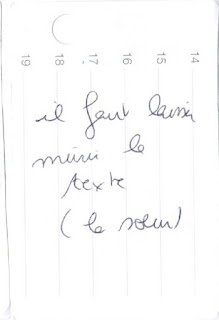 19 18 17 16 15 14
il faut laisser
mûrir le
texte
(le